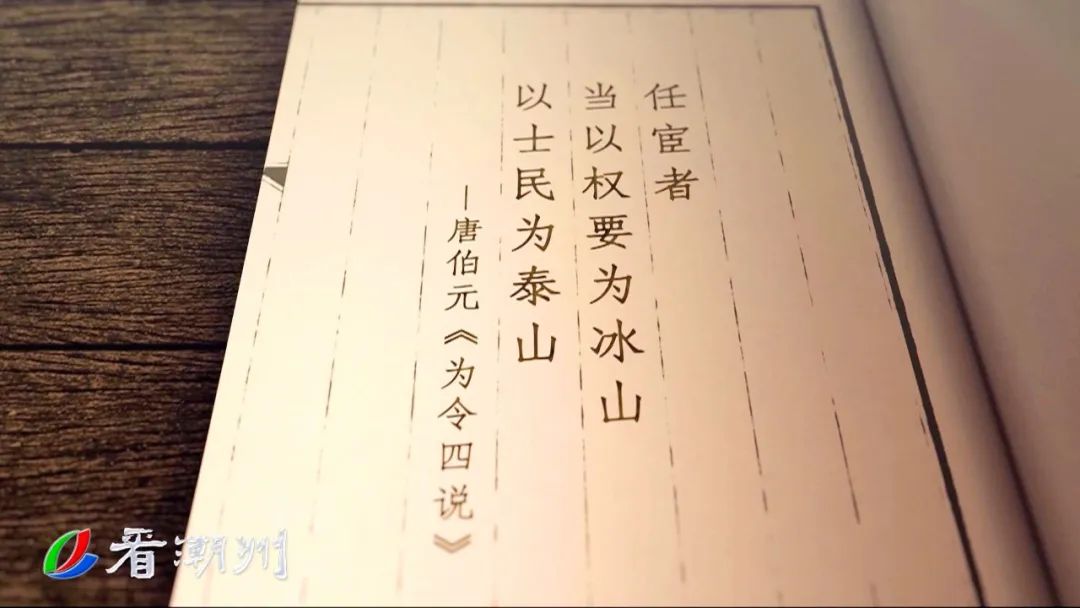 任宦者
当以权要为冰山
以士民为泰山
—唐伯元《为令四说》
看潮州